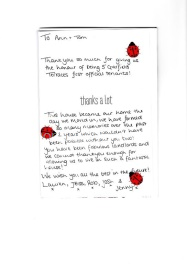 To Ann + Tom
Thank you so much for giving us
the honour of being 5
Terraces first official tenants!
thanks a lot
This house became our home the
day we moved in, we have
so many memories over the past
years which wouldn't have
been possible without you two!
You have been fabulous landlords and
we cannot thank you enough for
allowing us to live in such a fantastic
house!
We wish you all the best in the future!
Lauren, Jess, Ross, Josh &
Jenny